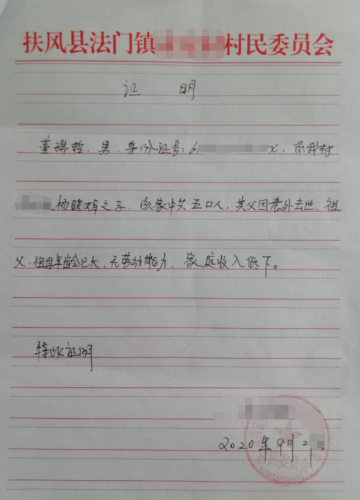 扶风县法门镇 村民委员会
证 明
董 哲，男，身份证号：6 X，系我村
杨晓 之子，该家中共五口人，其父因意外去世，祖
父、祖母年龄已大，无劳动能力，家庭收入低下。
特此证明
2020年9月2